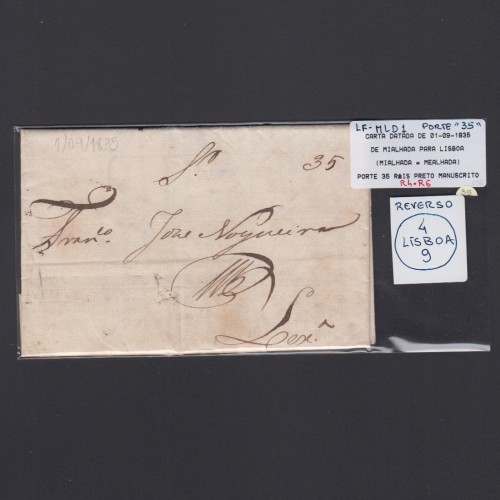 LF-MLD1 PORTE "35"
CARTA DATADA DE 01-09-1835
DE MIALHADA PARA LISBOA
(MIALHADA = MEALHADA)
PORTE 35 REIS PRETO MANUSCRITO
R4-R6
35
REVERSO
4
LISBOA
9
1/09/1835
Sr. 35
Franco. Joze Nogueira
Lxa.